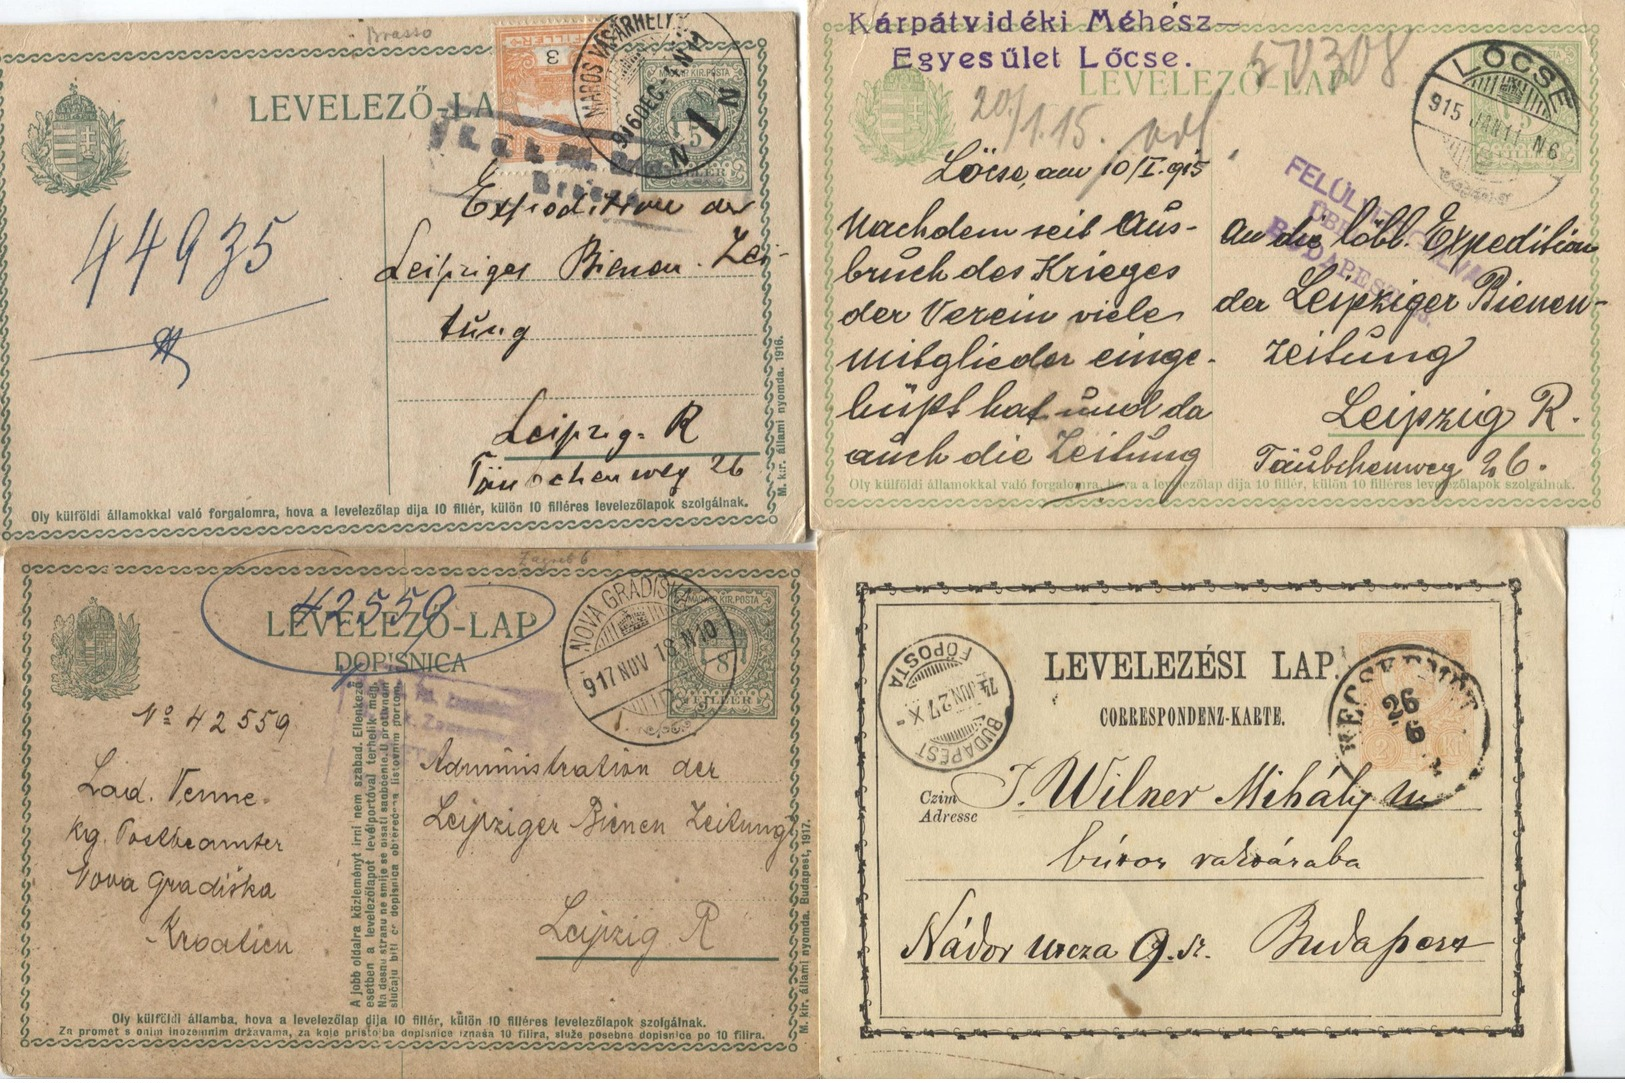 Brasso
LEVELEZŐ-LA
3
MAROS VÁSÁRHELY
916 DEC.
N 1 N
MAGYAR KIR. POSTA
5
44935
Expedition der
Leipziger Bienen-Zei-
tung
Leipzig-R
Täubchenweg 26
M. kir. állami nyomda. 1916.
Oly külföldi államokkal való forgalomra, hova a levelezőlap díja 10 fillér, külön 10 filléres levelezőlapok szolgálnak.
Kárpátvidéki Méhész-
Egyesület Lőcse.
LEVELEZŐ-LAP
20/1.15.
LŐCSE
915 JAN 11 N6
FILLÉR
BUDAPEST
Löcse, am 10/I.915
Nachdem seit Aus-
bruch des Krieges
der Verein viele
Mitglieder einge-
büßt hat und da
auch die Zeitung
An die löbl. Expedition
der Leipziger Bienen-
Zeitung
Leipzig R.
Täubchenweg 26.
Oly külföldi államokkal való forgalomra, hova a levelezőlap díja 10 fillér, külön 10 filléres levelezőlapok szolgálnak.
Zagreb 6
42559
LEVELEZŐ-LAP
DOPISNICA
NOVA GRADIŠKA
917 NOV 18 N10
MAGYAR KIR. POSTA
8
FILLÉR
No 42559
Lad. Venne
Kg. Postbeamter
Nova Gradiška
Kroatien
A jobb oldalra közleményt írni nem szabad. Ellenkező
esetben a levelezőlapot levélportóval terhelik meg.
Na desnu stranu ne smije se pisati saobćenje. U protivnom
slučaju biti će dopisnica obterećena listovnim portom.
Administration der
Leipziger Bienen Zeitung
Leipzig R
M. kir. állami nyomda. Budapest, 1917.
Oly külföldi államba, hova a levelezőlap díja 10 fillér, külön 10 filléres levelezőlapok szolgálnak.
Za promet s onim inozemnim državama, za koje pristojba dopisnice iznaša 10 filira, služe posebne dopisnice po 10 filira.
LEVELEZÉSI LAP.
CORRESPONDENZ-KARTE.
BUDAPEST
74 JUN. 27 X
FŐPOSTA
KECSKEMÉT
26
6
Czim
Adresse
T. Wilner Mihály úr
bútor raktárába
Nádor utcza 9. sz. Budapest